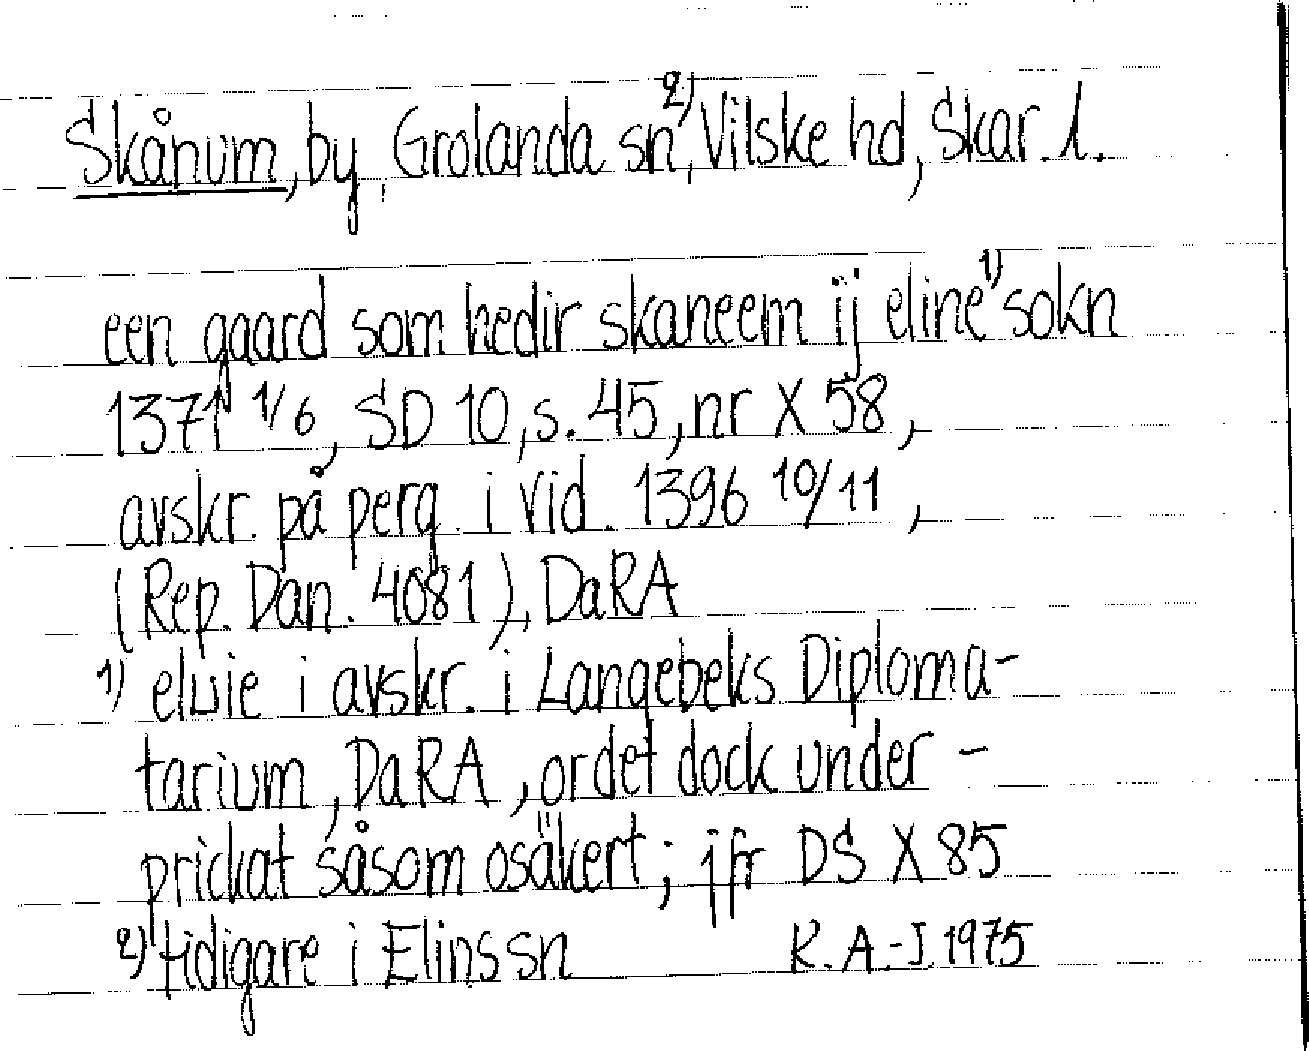 Skånum, by, Grolanda sn²⁾, Vilske hd, Skar. l.
een gaard som hedir skaneem ij eline¹⁾ sokn
1371 1/6, SD 10, s. 45, nr X 58,
avskr. på perg. i vid. 1396 10/11,
(Rep. Dan. 4081), DaRA
1) elwie i avskr. i Langebeks Diploma-
tarium, DaRA, ordet dock under-
prickat såsom osäkert; jfr DS X 85
2) tidigare i Elins sn R.A.-J. 1975